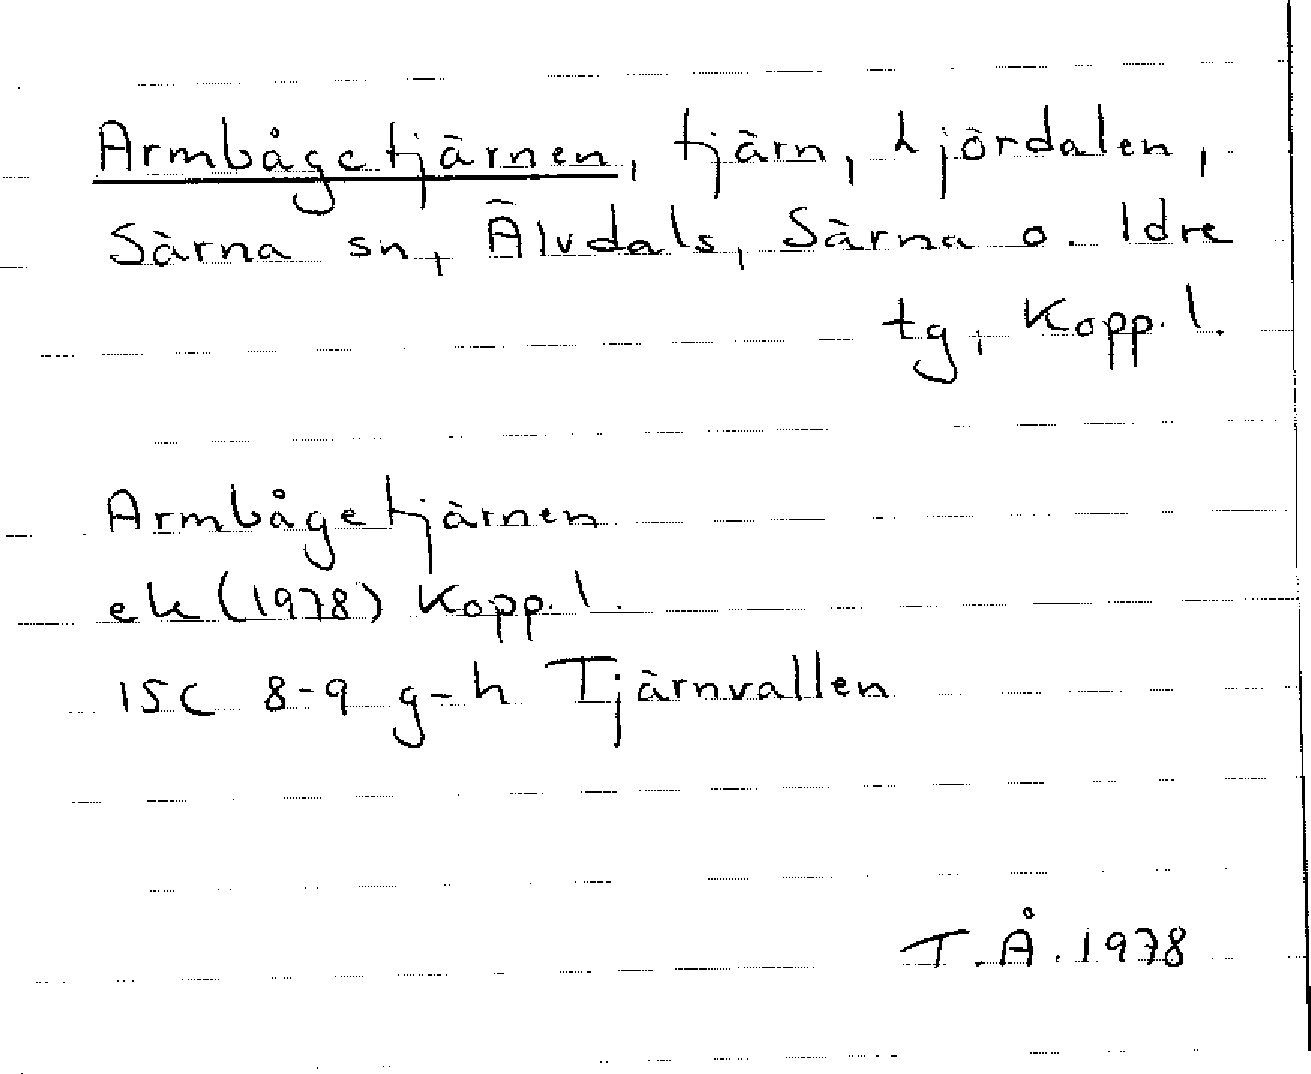 Armbågetjärnen, tjärn, hjördalen,
Särna sn, Älvdals, Särna o. Idre
tg, Kopp. l.
Armbågetjärnen
ek (1978) Kopp. l.
15C 8-9 g-h Tjärnvallen
T.Å. 1978